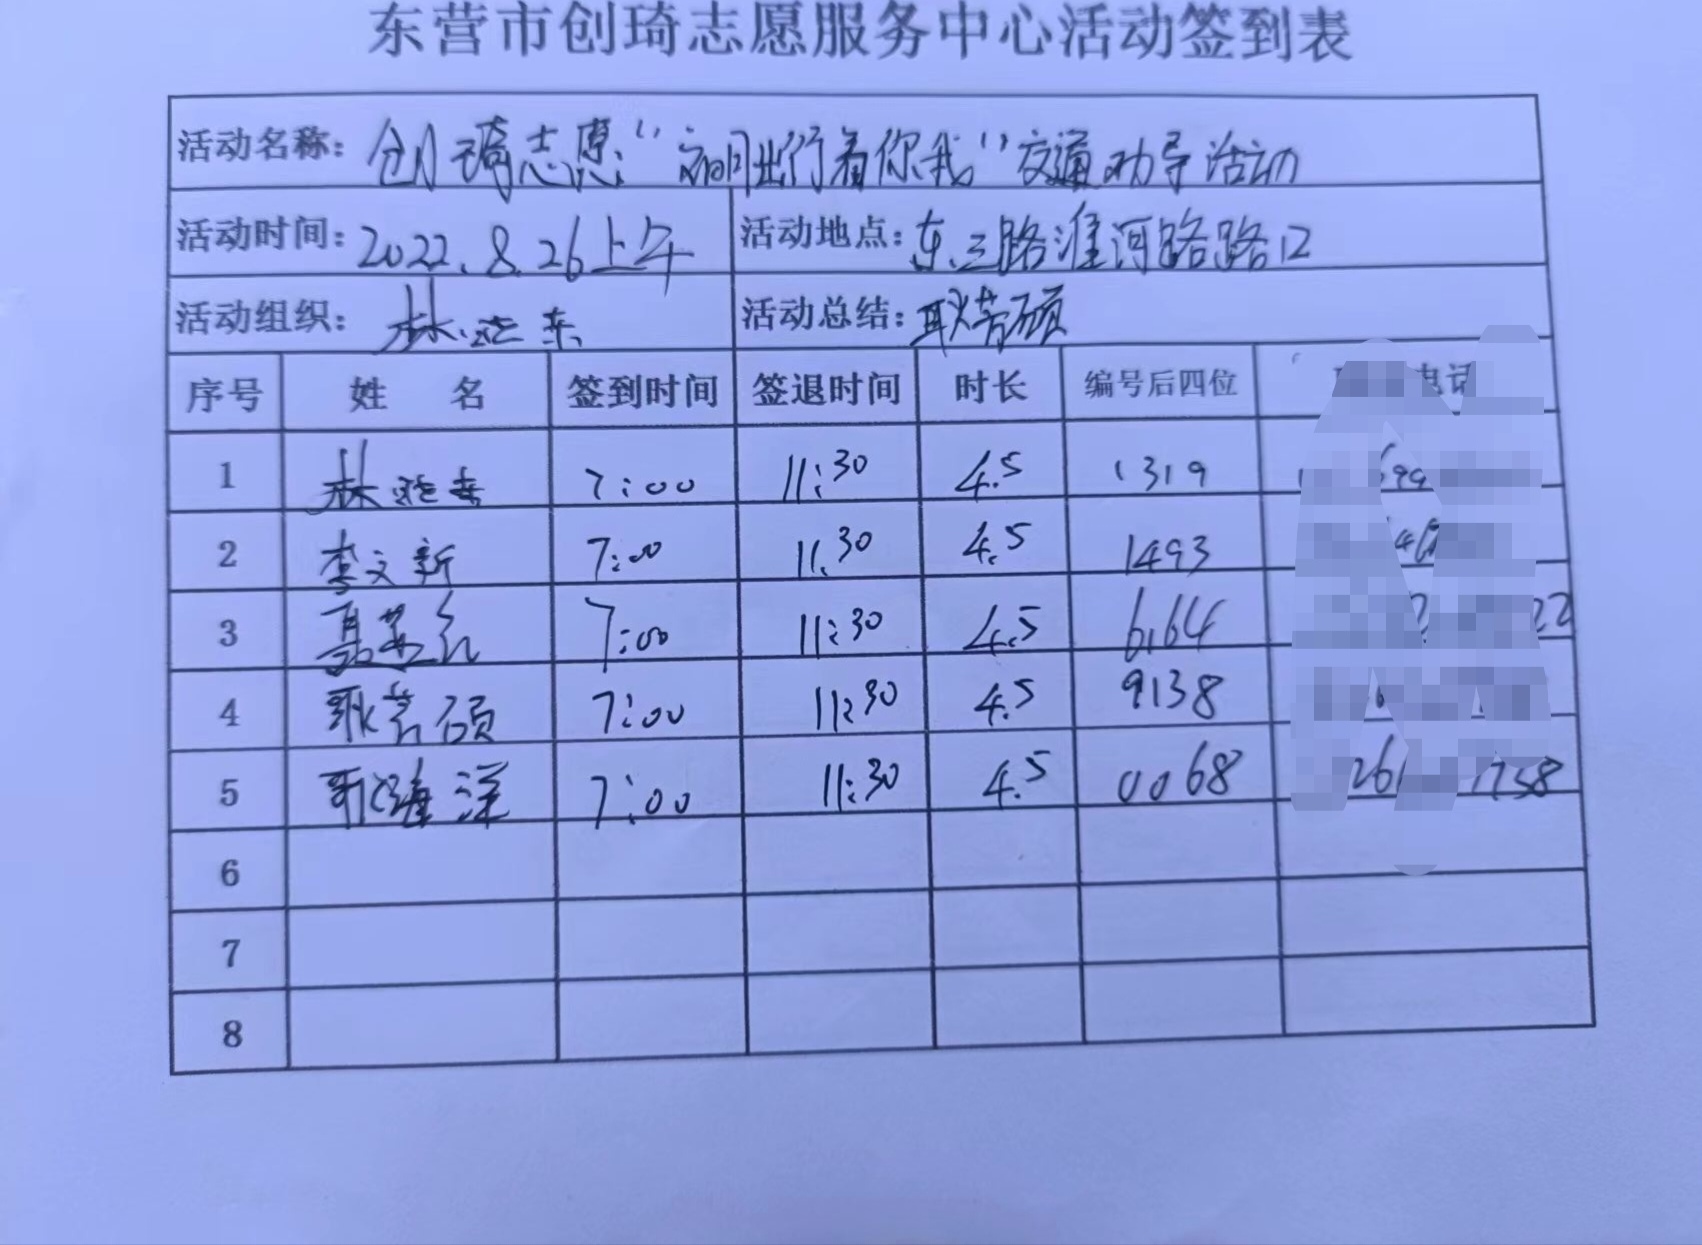 东营市创琦志愿服务中心活动签到表
活动名称: 创琦志愿“文明出行看你我”交通劝导活动
活动时间: 2022.8.26上午 活动地点: 东三路淮河路路口
活动组织: 林 东 活动总结: 耿芳硕
序号 姓 名 签到时间 签退时间 时长 编号后四位 电话
1 林 7:00 11:30 4.5 1319
2 李文新 7:00 11.30 4.5 1493
3 7:00 11:30 4.5 6164 22
4 耿芳硕 7:00 11:30 4.5 9138
5 耿海洋 7:00 11:30 4.5 0068 26 1758
6
7
8